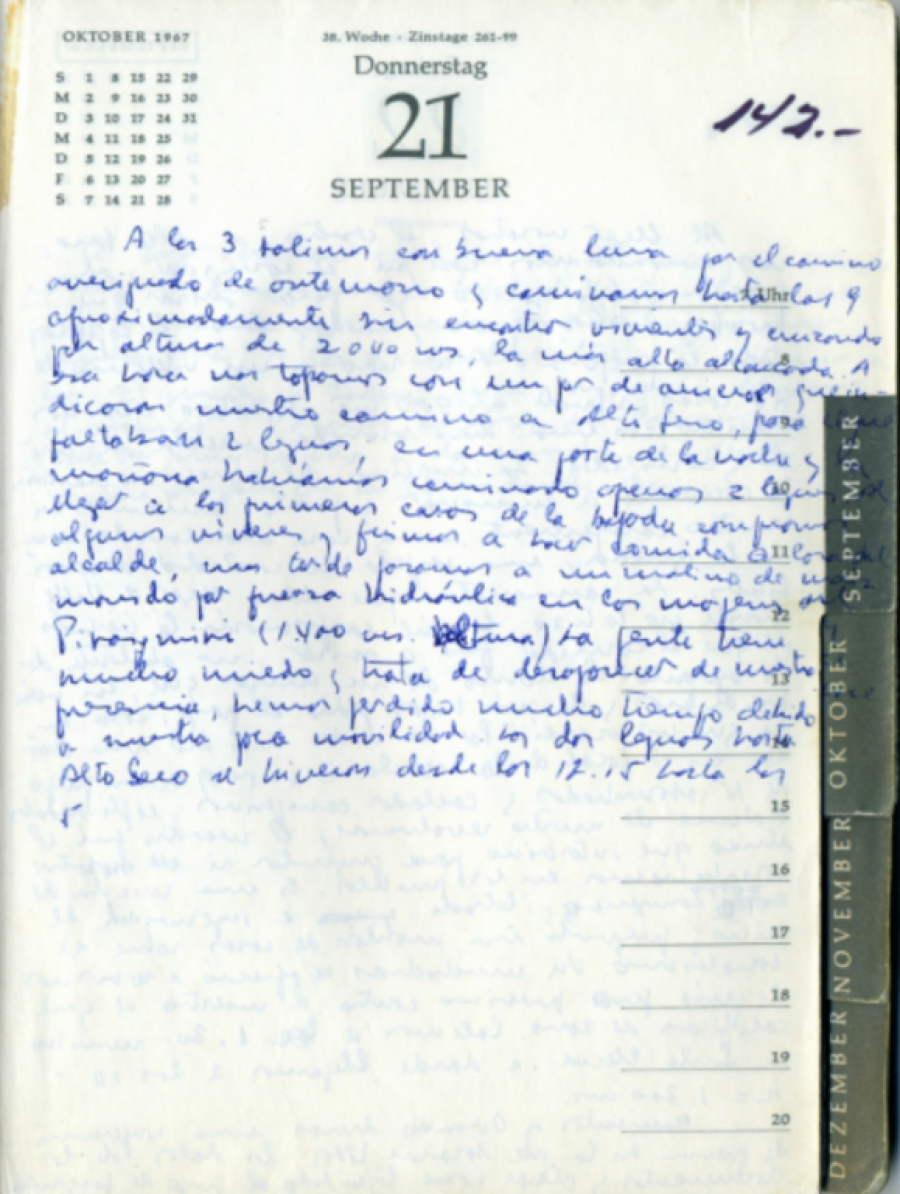 OKTOBER 1967
S 1 8 15 22 29
M 2 9 16 23 30
D 3 10 17 24 31
M 4 11 18 25
D 5 12 19 26
F 6 13 20 27
S 7 14 21 28
38. Woche · Zinstage 261-99
Donnerstag
21
SEPTEMBER
142.-
A las 3 salimos con buena luna por el camino
averiguado de antemano y caminamos hasta las 9
aproximadamente sin encontrar vivientes y cruzando
por alturas de 2000 ms. la más alta alcanzada. A
esa hora nos topamos con un par de arrieros que in-
dicaron nuestro camino a Alto Seco, para
faltaban 2 leguas, en una parte de la noche y la
mañana habíamos caminado apenas 2 leguas. al
llegar a las primeras casas de la bajada compramos
algunos víveres y fuimos a hacer comida a la casa del
alcalde, mas tarde pasamos a un molino de maíz
movido por fuerza hidráulica en las márgenes
Piraymiri (1400 ms. altura) La gente tiene
mucho miedo y trata de desaparecer de nuestra
presencia, hemos perdido mucho tiempo debido
a nuestra poca movilidad las dos leguas hasta
Alto Seco se hicieron desde las 12.15 hasta las
5
Uhr
8
9
10
11
12
13
14
15
16
17
18
19
20
SEPTEMBER
OKTOBER
NOVEMBER
DEZEMBER